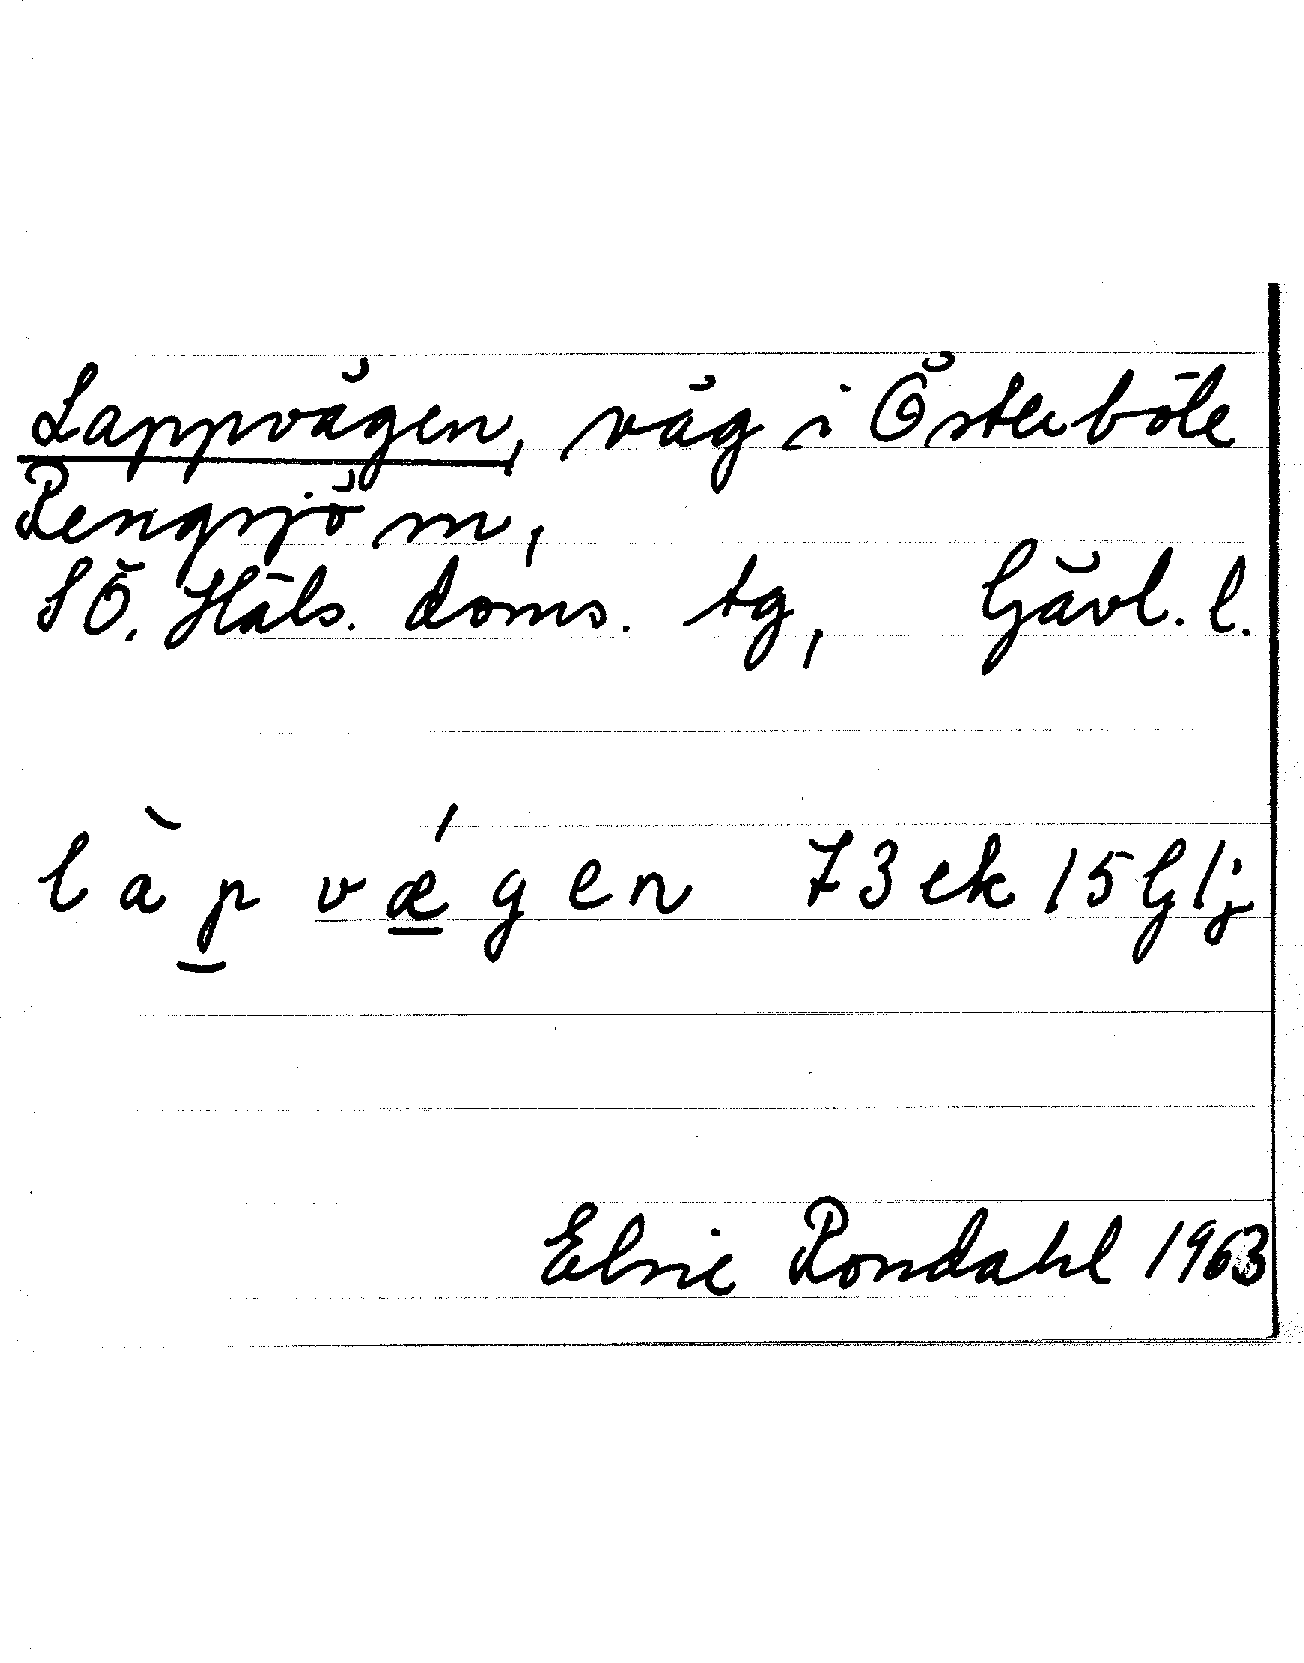 Lappvägen, väg i Österböle
Rengsjö sn,
SÖ. Häls. doms. tg, Gävl. l.
l à p v ǽ g e n 73 ek 15 G 1j
Elsie Rondahl 1963